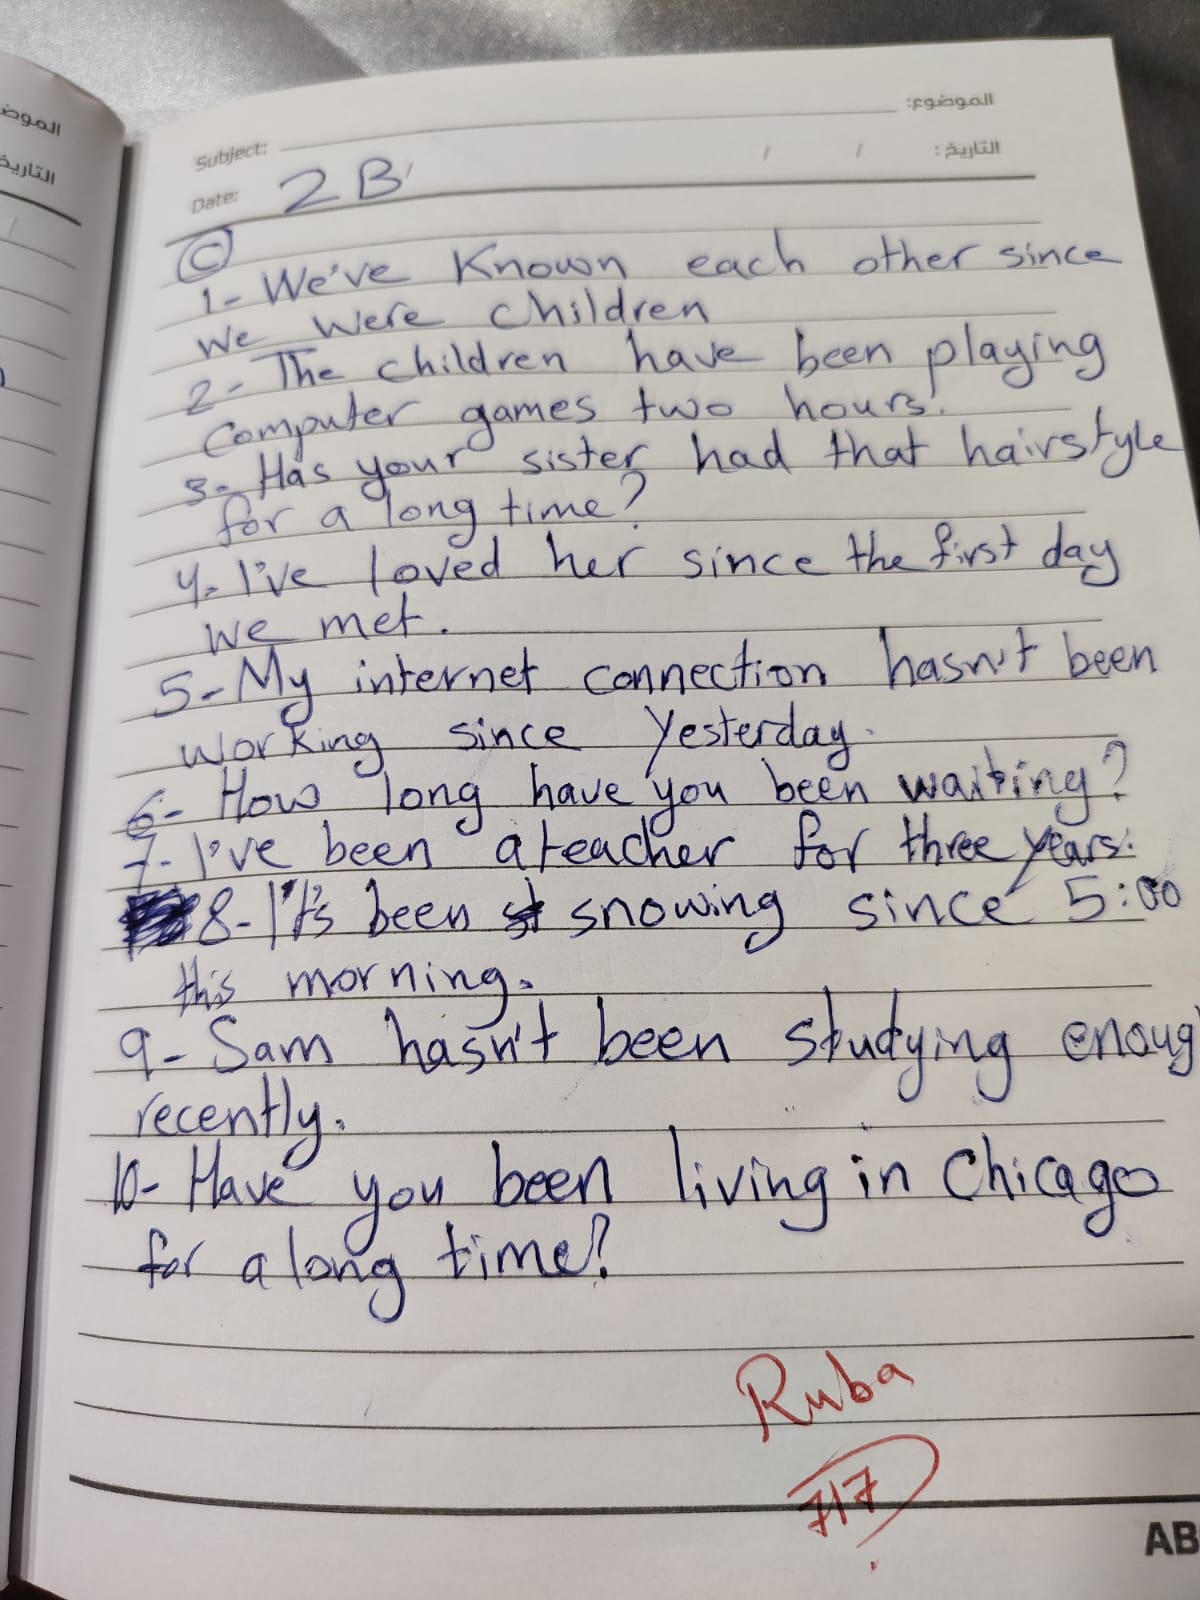 الموضوع:
Subject:
التاريخ:
Date: 2B
C
1- We've Known each other since
we were children
2- The children have been playing
Computer games two hours.
3- Has your sister had that hairstyle
for a long time?
4- I've loved her since the first day
we met.
5- My internet connection hasn't been
working since yesterday.
6- How long have you been waiting?
7- I've been a teacher for three years.
8- It's been snowing since 5:00
this morning.
9- Sam hasn't been studying enoug
recently.
10- Have you been living in Chicago
for a long time?
Ruba
7/7
AB